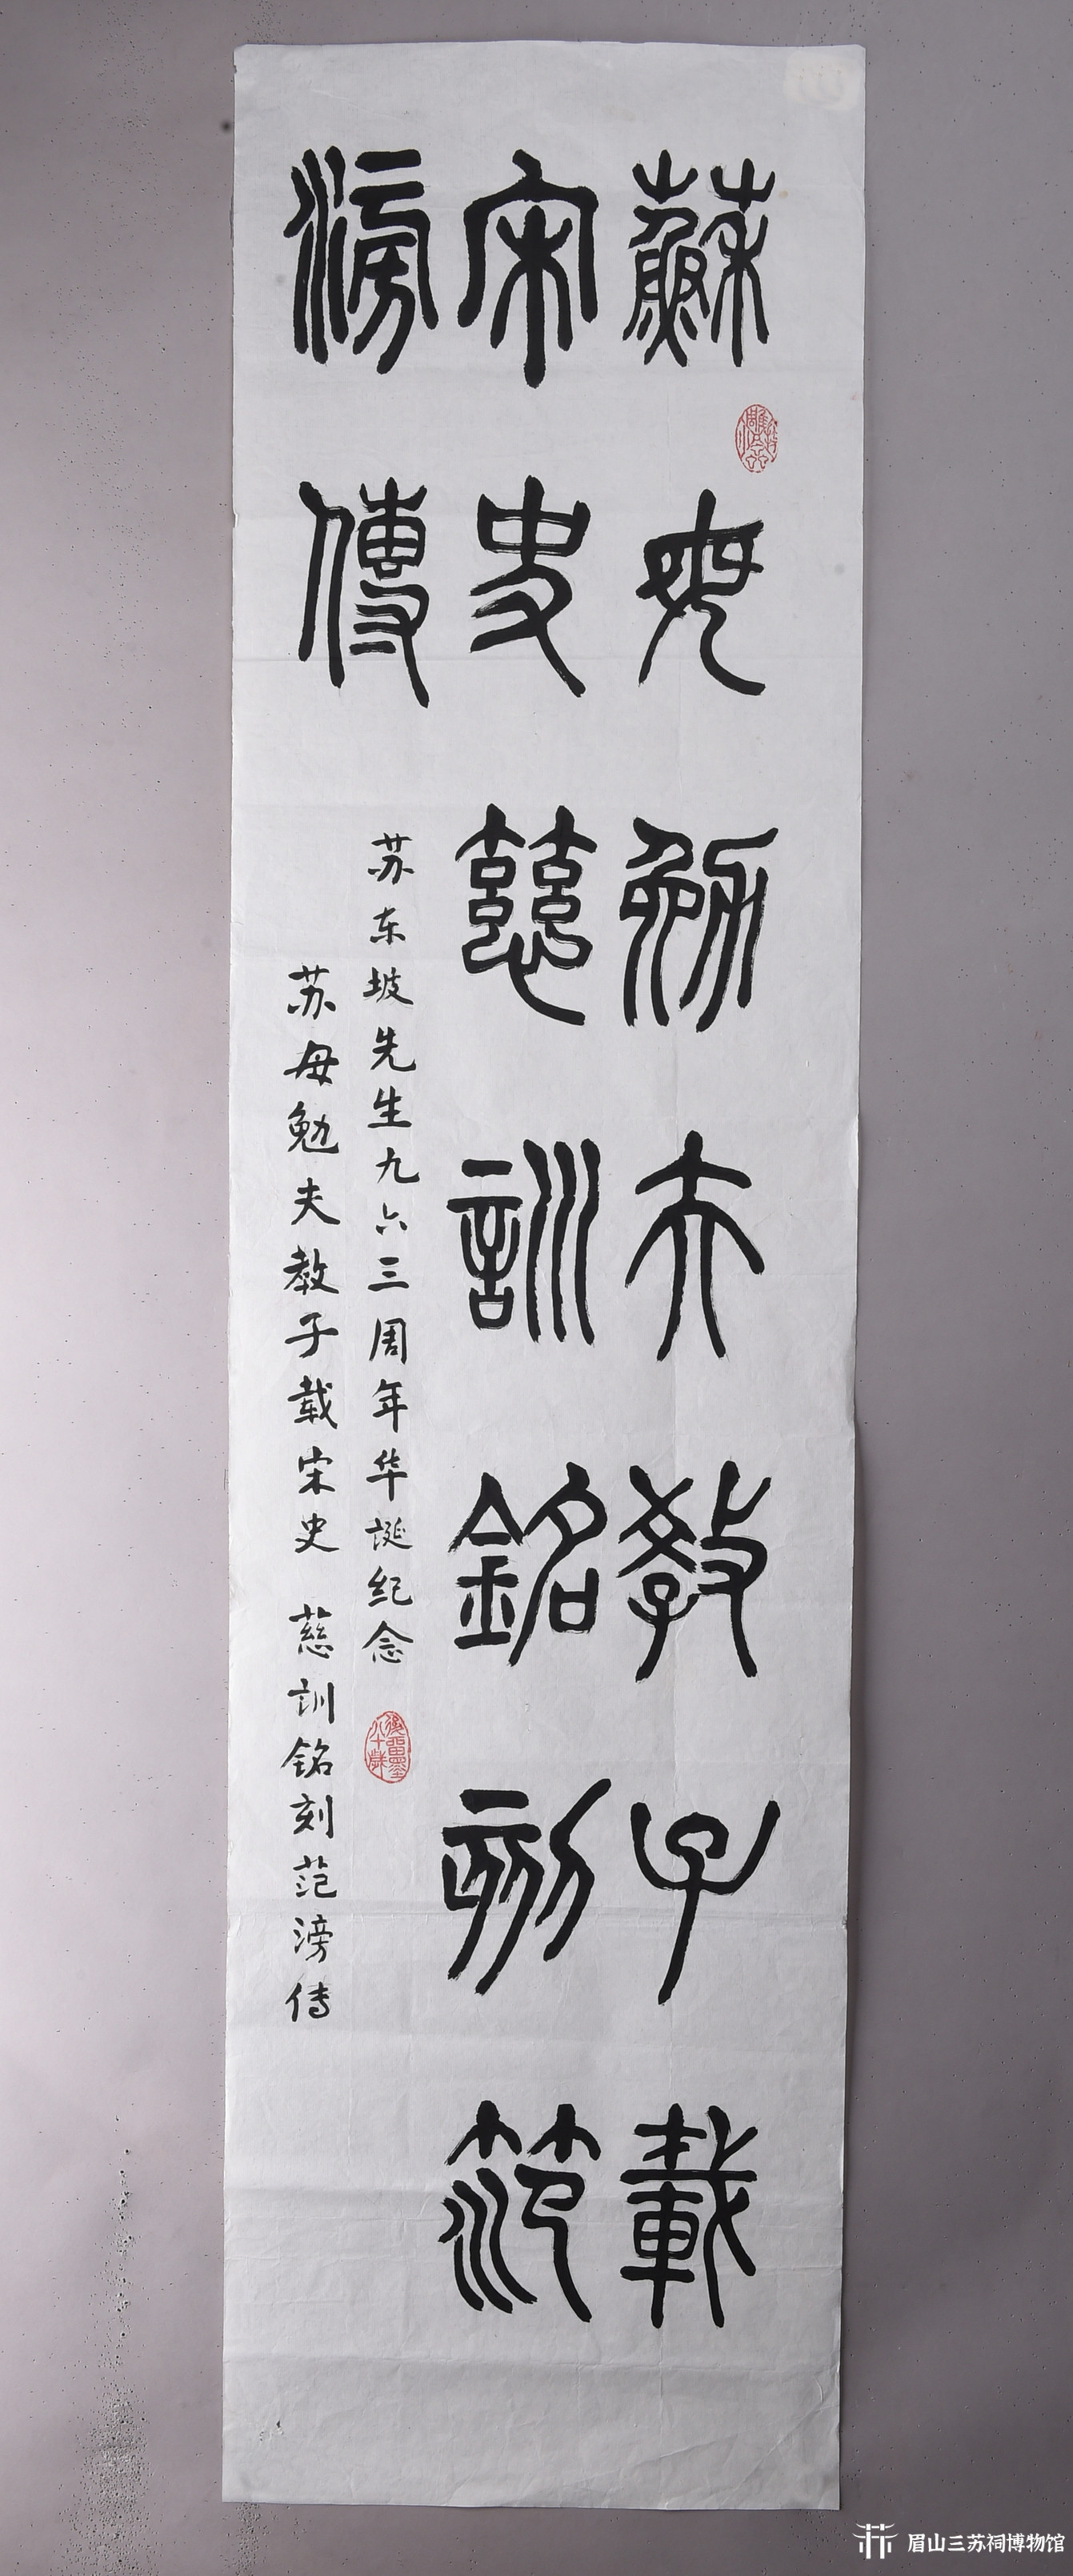 蘇母勉夫教子載
宋史慈訓銘刻范
滂傳
苏东坡先生九六三周年华诞纪念
苏母勉夫教子载宋史 慈训铭刻范滂传
眉山三苏祠博物馆